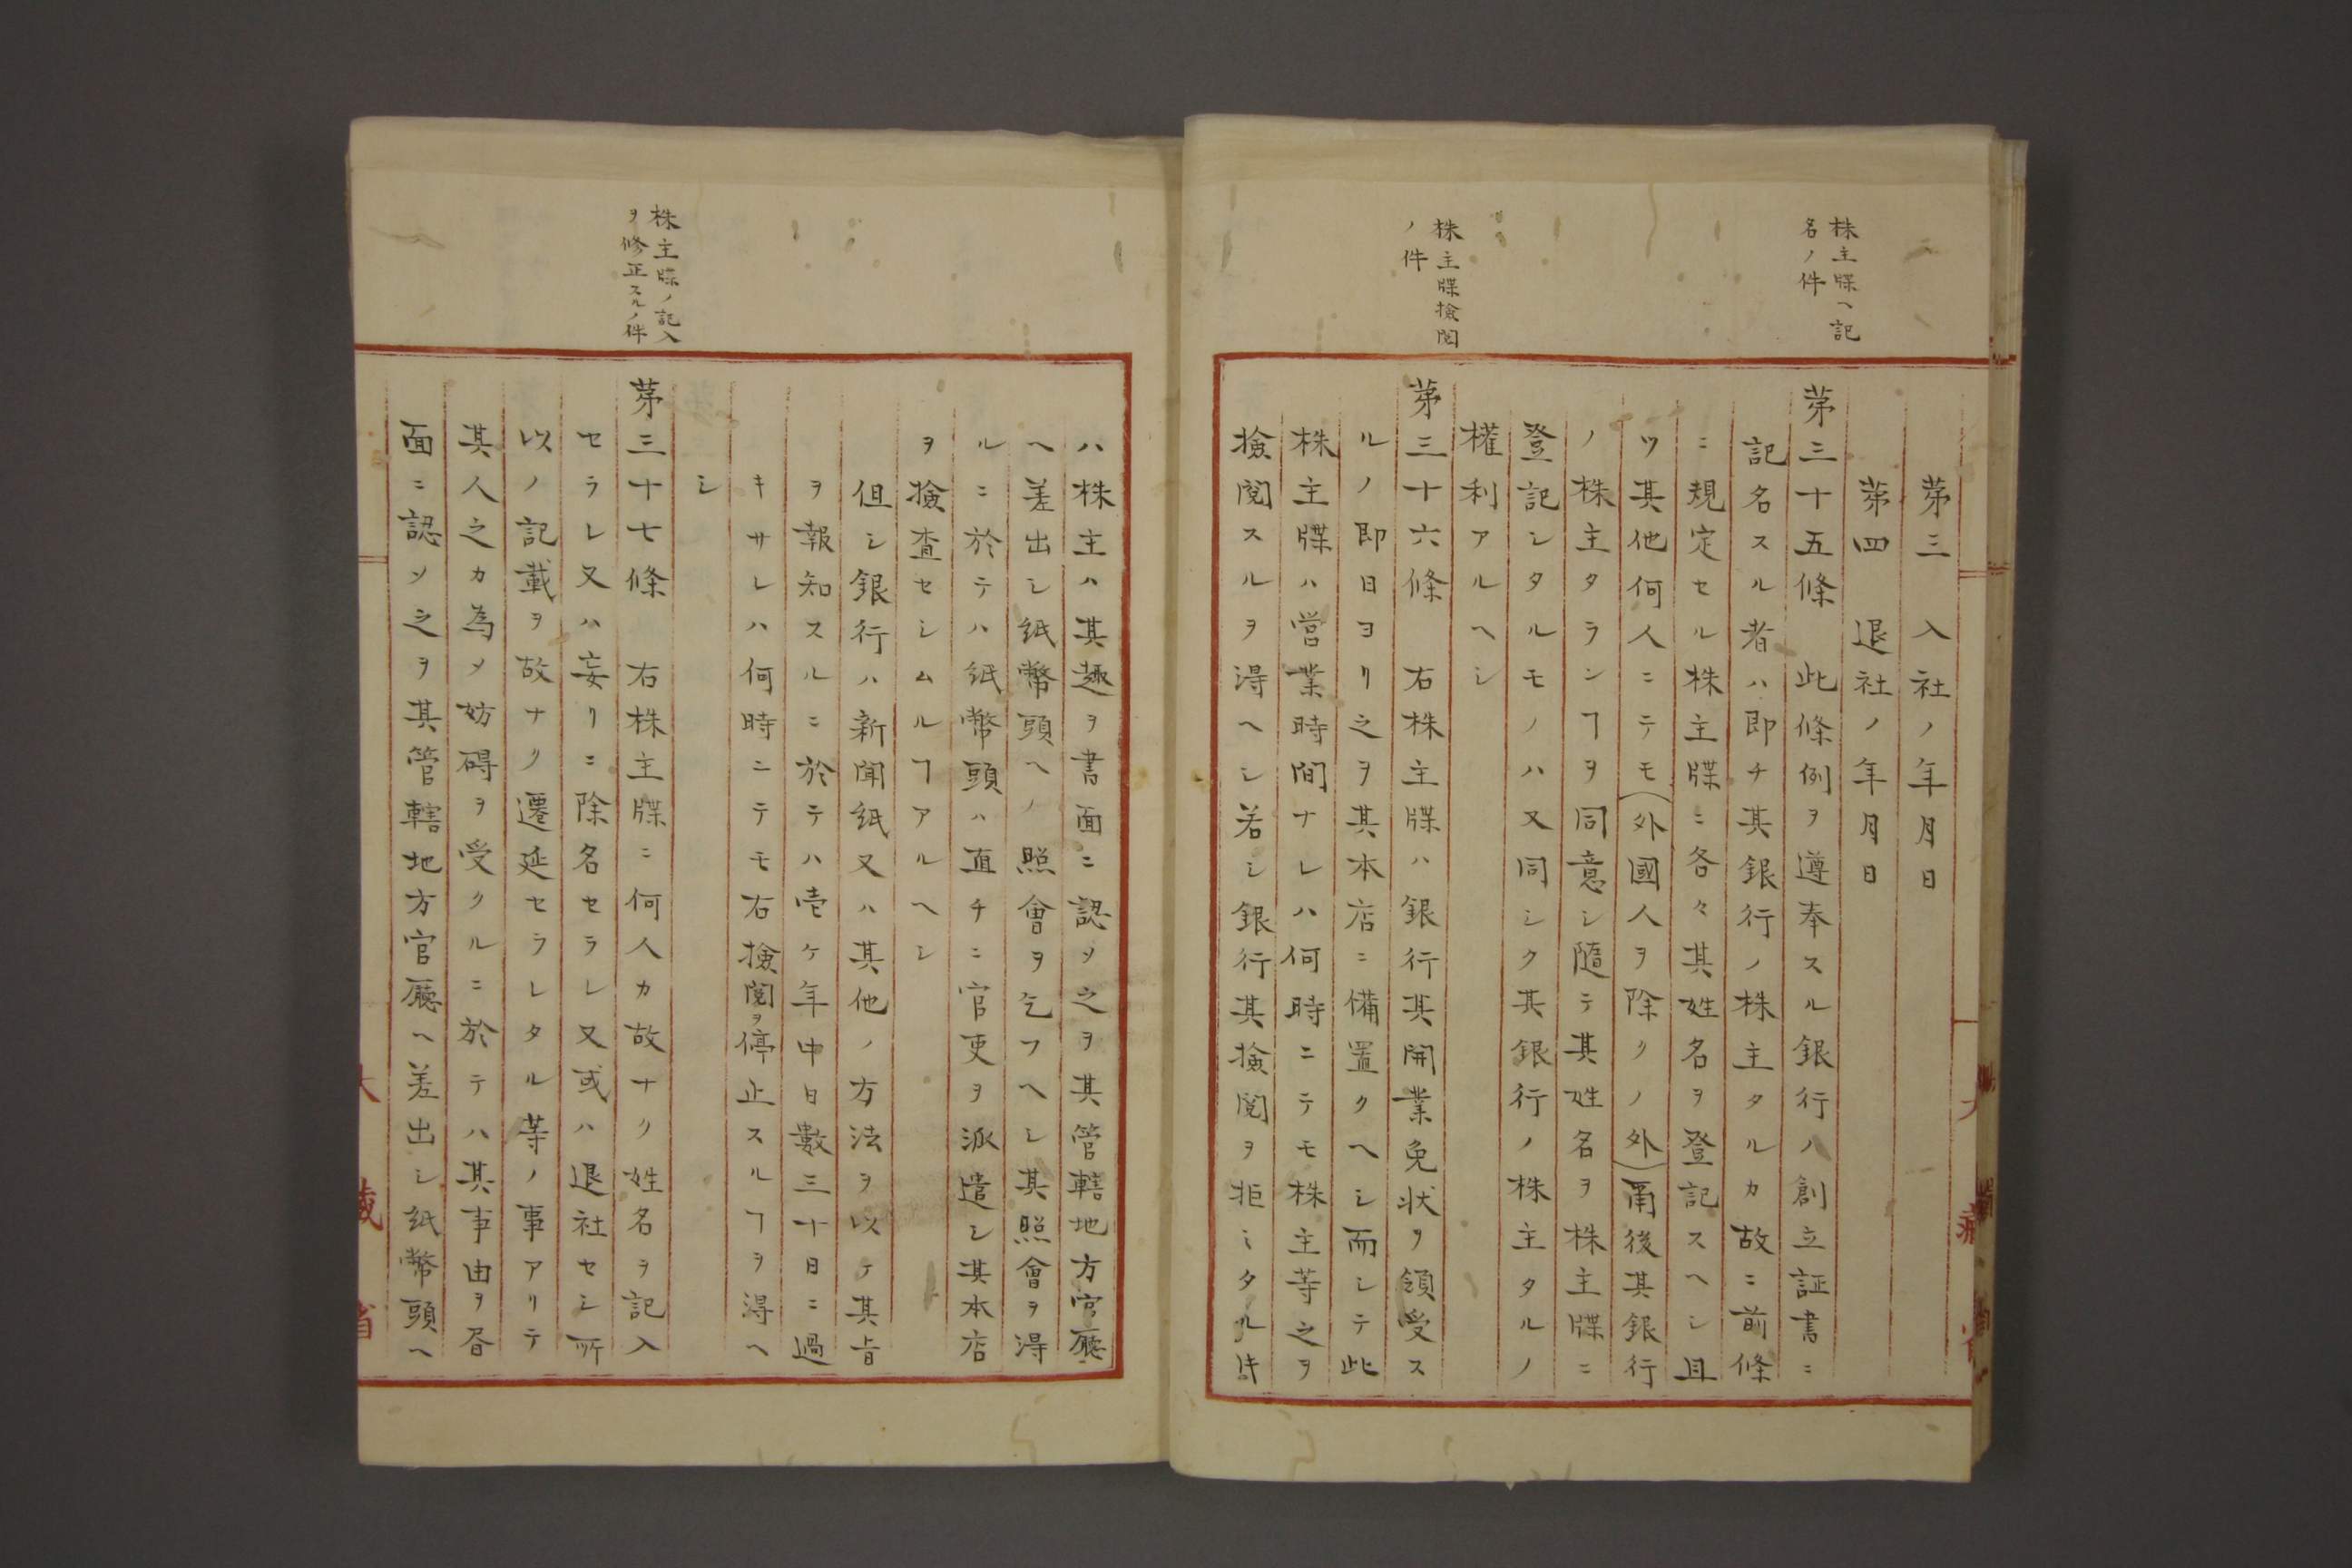 株主牒ヘ記
名ノ件
第三　入社ノ年月日
第四　退社ノ年月日
第三十五條　此條例ヲ遵奉スル銀行ノ創立証書ニ
記名スル者ハ即チ其銀行ノ株主タルカ故ニ前條
ニ規定セル株主牒ニ各々其姓名ヲ登記スヘシ且
ツ其他何人ニテモ(外國人ヲ除クノ外)爾後其銀行
ノ株主タランヿヲ同意シ隨テ其姓名ヲ株主牒ニ
登記シタルモノハ又同シク其銀行ノ株主タルノ
權利アルヘシ
株主牒撿閲
ノ件
第三十六條　右株主牒ハ銀行其開業免状ヲ領受ス
ルノ即日ヨリ之ヲ其本店ニ備置クヘシ而シテ此
株主牒ハ営業時間ナレハ何時ニテモ株主等之ヲ
撿閲スルヲ得ヘシ若シ銀行其撿閲ヲ拒ミタル片
ハ株主ハ其趣ヲ書面ニ認メ之ヲ其管轄地方官廳
ヘ差出シ紙幣頭ヘノ照會ヲ乞フヘシ其照會ヲ得
ルニ於テハ紙幣頭ハ直チニ官吏ヲ派遣シ其本店
ヲ撿査セシムルヿアルヘシ
但シ銀行ハ新聞紙又ハ其他ノ方法ヲ以テ其旨
ヲ報知スルニ於テハ壱ケ年中日數三十日ニ過
キサレハ何時ニテモ右撿閲ヲ停止スルヿヲ得ヘ
シ
株主牒ノ記入
ヲ修正スルノ件
第三十七條　右株主牒ニ何人カ故ナク姓名ヲ記入
セラレ又ハ妄リニ除名セラレ又或ハ退社セシ所
以ノ記載ヲ故ナク遷延セラレタル等ノ事アリテ
其人之カ為メ妨碍ヲ受クルニ於テハ其事由ヲ
面ニ認メ之ヲ其管轄地方官廳ヘ差出シ紙幣頭ヘ
大藏省